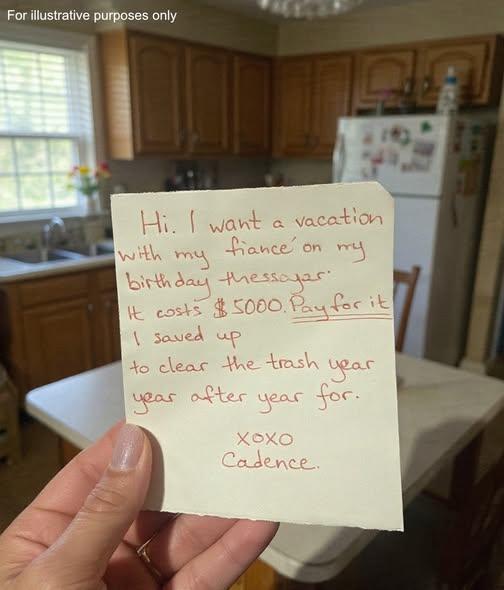 For illustrative purposes only
Hi. I want a vacation
with my fiancé on my
birthday
It costs $5000. Pay for it
I saved up
to clear the trash year
year after year for.
XOXO
Cadence.